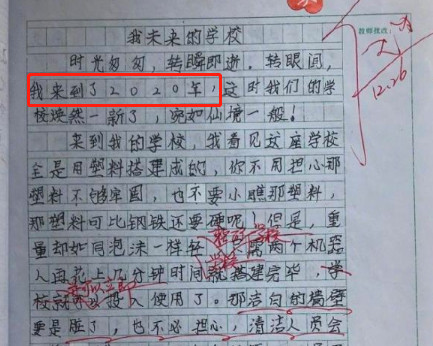 我未来的学校
教师批改:
时光匆匆,转瞬即逝。转眼间,
我来到了2020年,这时我们的学
12.26
校焕然一新了,宛如仙境一般!
来到我的学校,我看见这座学校
全是用塑料搭建成的,你不用担心那
塑料不够牢固,也不要小瞧那塑料,
那塑料可比钢铁还要硬呢!但是,重
量却如同泡沫一样轻 两个机器
人再花上几分钟时间就搭建完毕,学
校就 投入使用了。那洁白的墙壁
要是脏了,也不必担心,清洁人员会